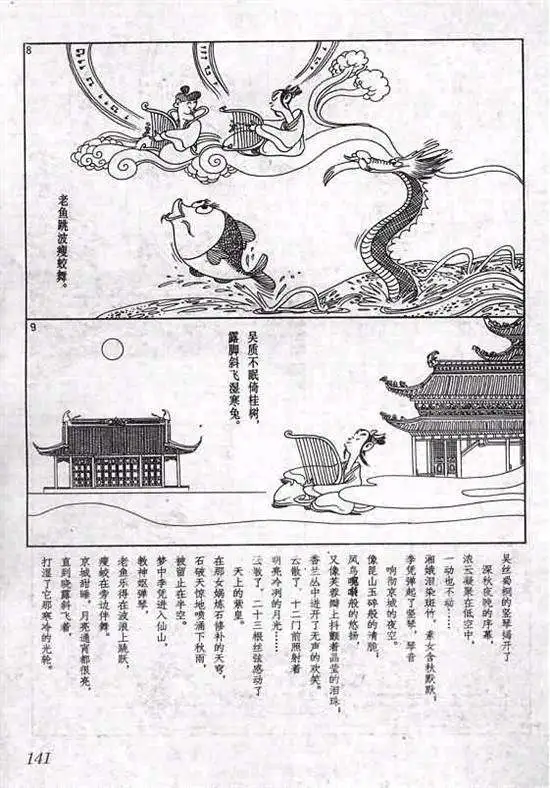 8
老鱼跳波瘦蛟舞。
9
吴质不眠倚桂树，
露脚斜飞湿寒兔。
吴丝蜀桐的竖琴揭开了
深秋夜晚的序幕
浓云凝聚在低空中，
一动也不动……
湘娥泪染斑竹，素女含愁默默；
李凭弹起了竖琴，琴音
响彻京城的夜空。
像昆山玉碎般的清脆；
凤鸟鸣啭般的悠扬，
又像芙蓉瓣上抖颤着晶莹的泪珠；
香兰丛中迸开了无声的欢笑。
云散了，十二门前照射着
明亮冷冽的月光……
云散了，二十三根丝弦感动了
天上的紫皇。
在那女娲炼石修补的天穹，
石破天惊地喷涌下秋雨，
被留止在半空。
梦中李凭进入仙山，
教神妪弹琴，
老鱼乐得在波浪上跳跃，
瘦蛟在旁边伴舞。
京城甜睡，月亮通宵都很亮，
直到晓露斜飞着，
打湿了它那寒冷的光轮。
141